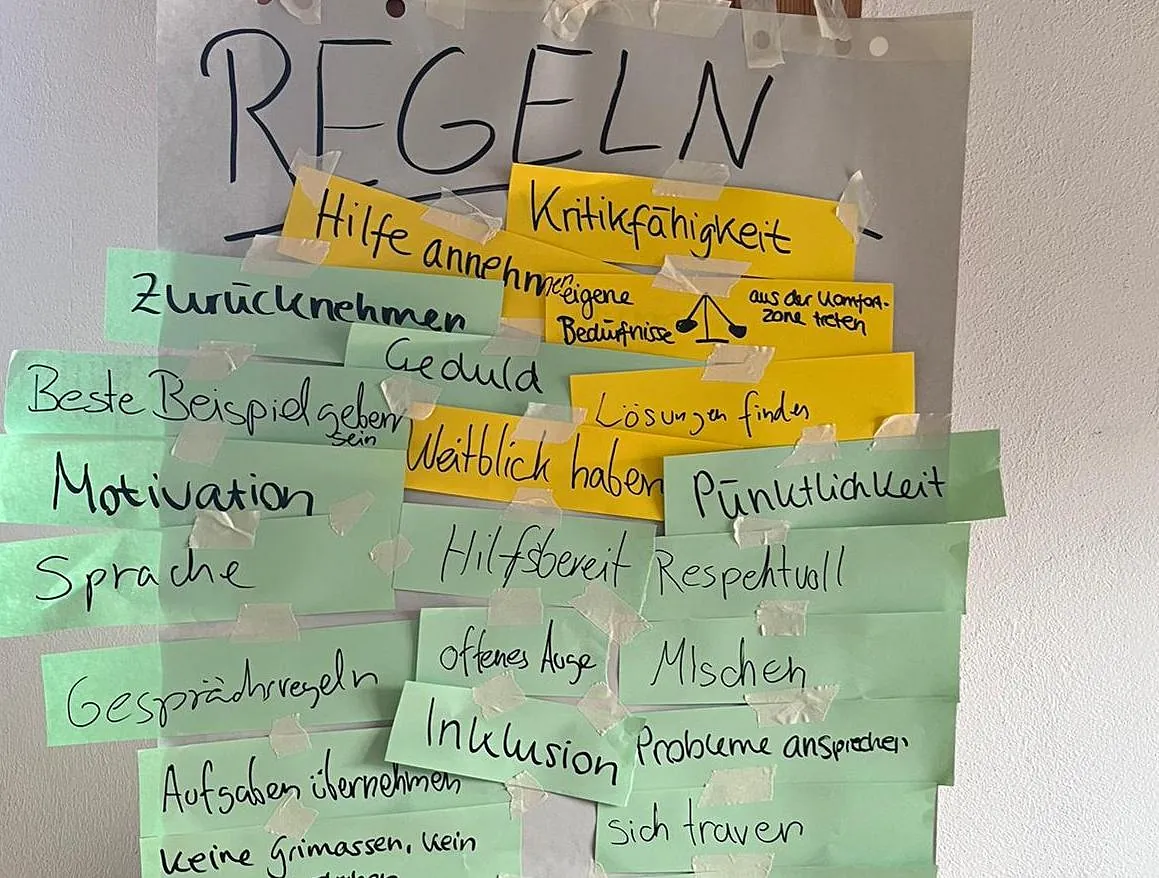 REGELN
Kritikfähigkeit
Hilfe annehmen
eigene
Bedürfnisse
aus der Komfort-
zone treten
Zurücknehmen
Geduld
Beste Beispiel geben
sein
Lösungen finden
Weitblick haben
Motivation
Pünktlichkeit
Sprache
Hilfsbereit
Respektvoll
Gesprächsregeln
offenes Auge
Mischen
Inklusion
Probleme ansprechen
Aufgaben übernehmen
sich trauen
keine Grimassen, kein